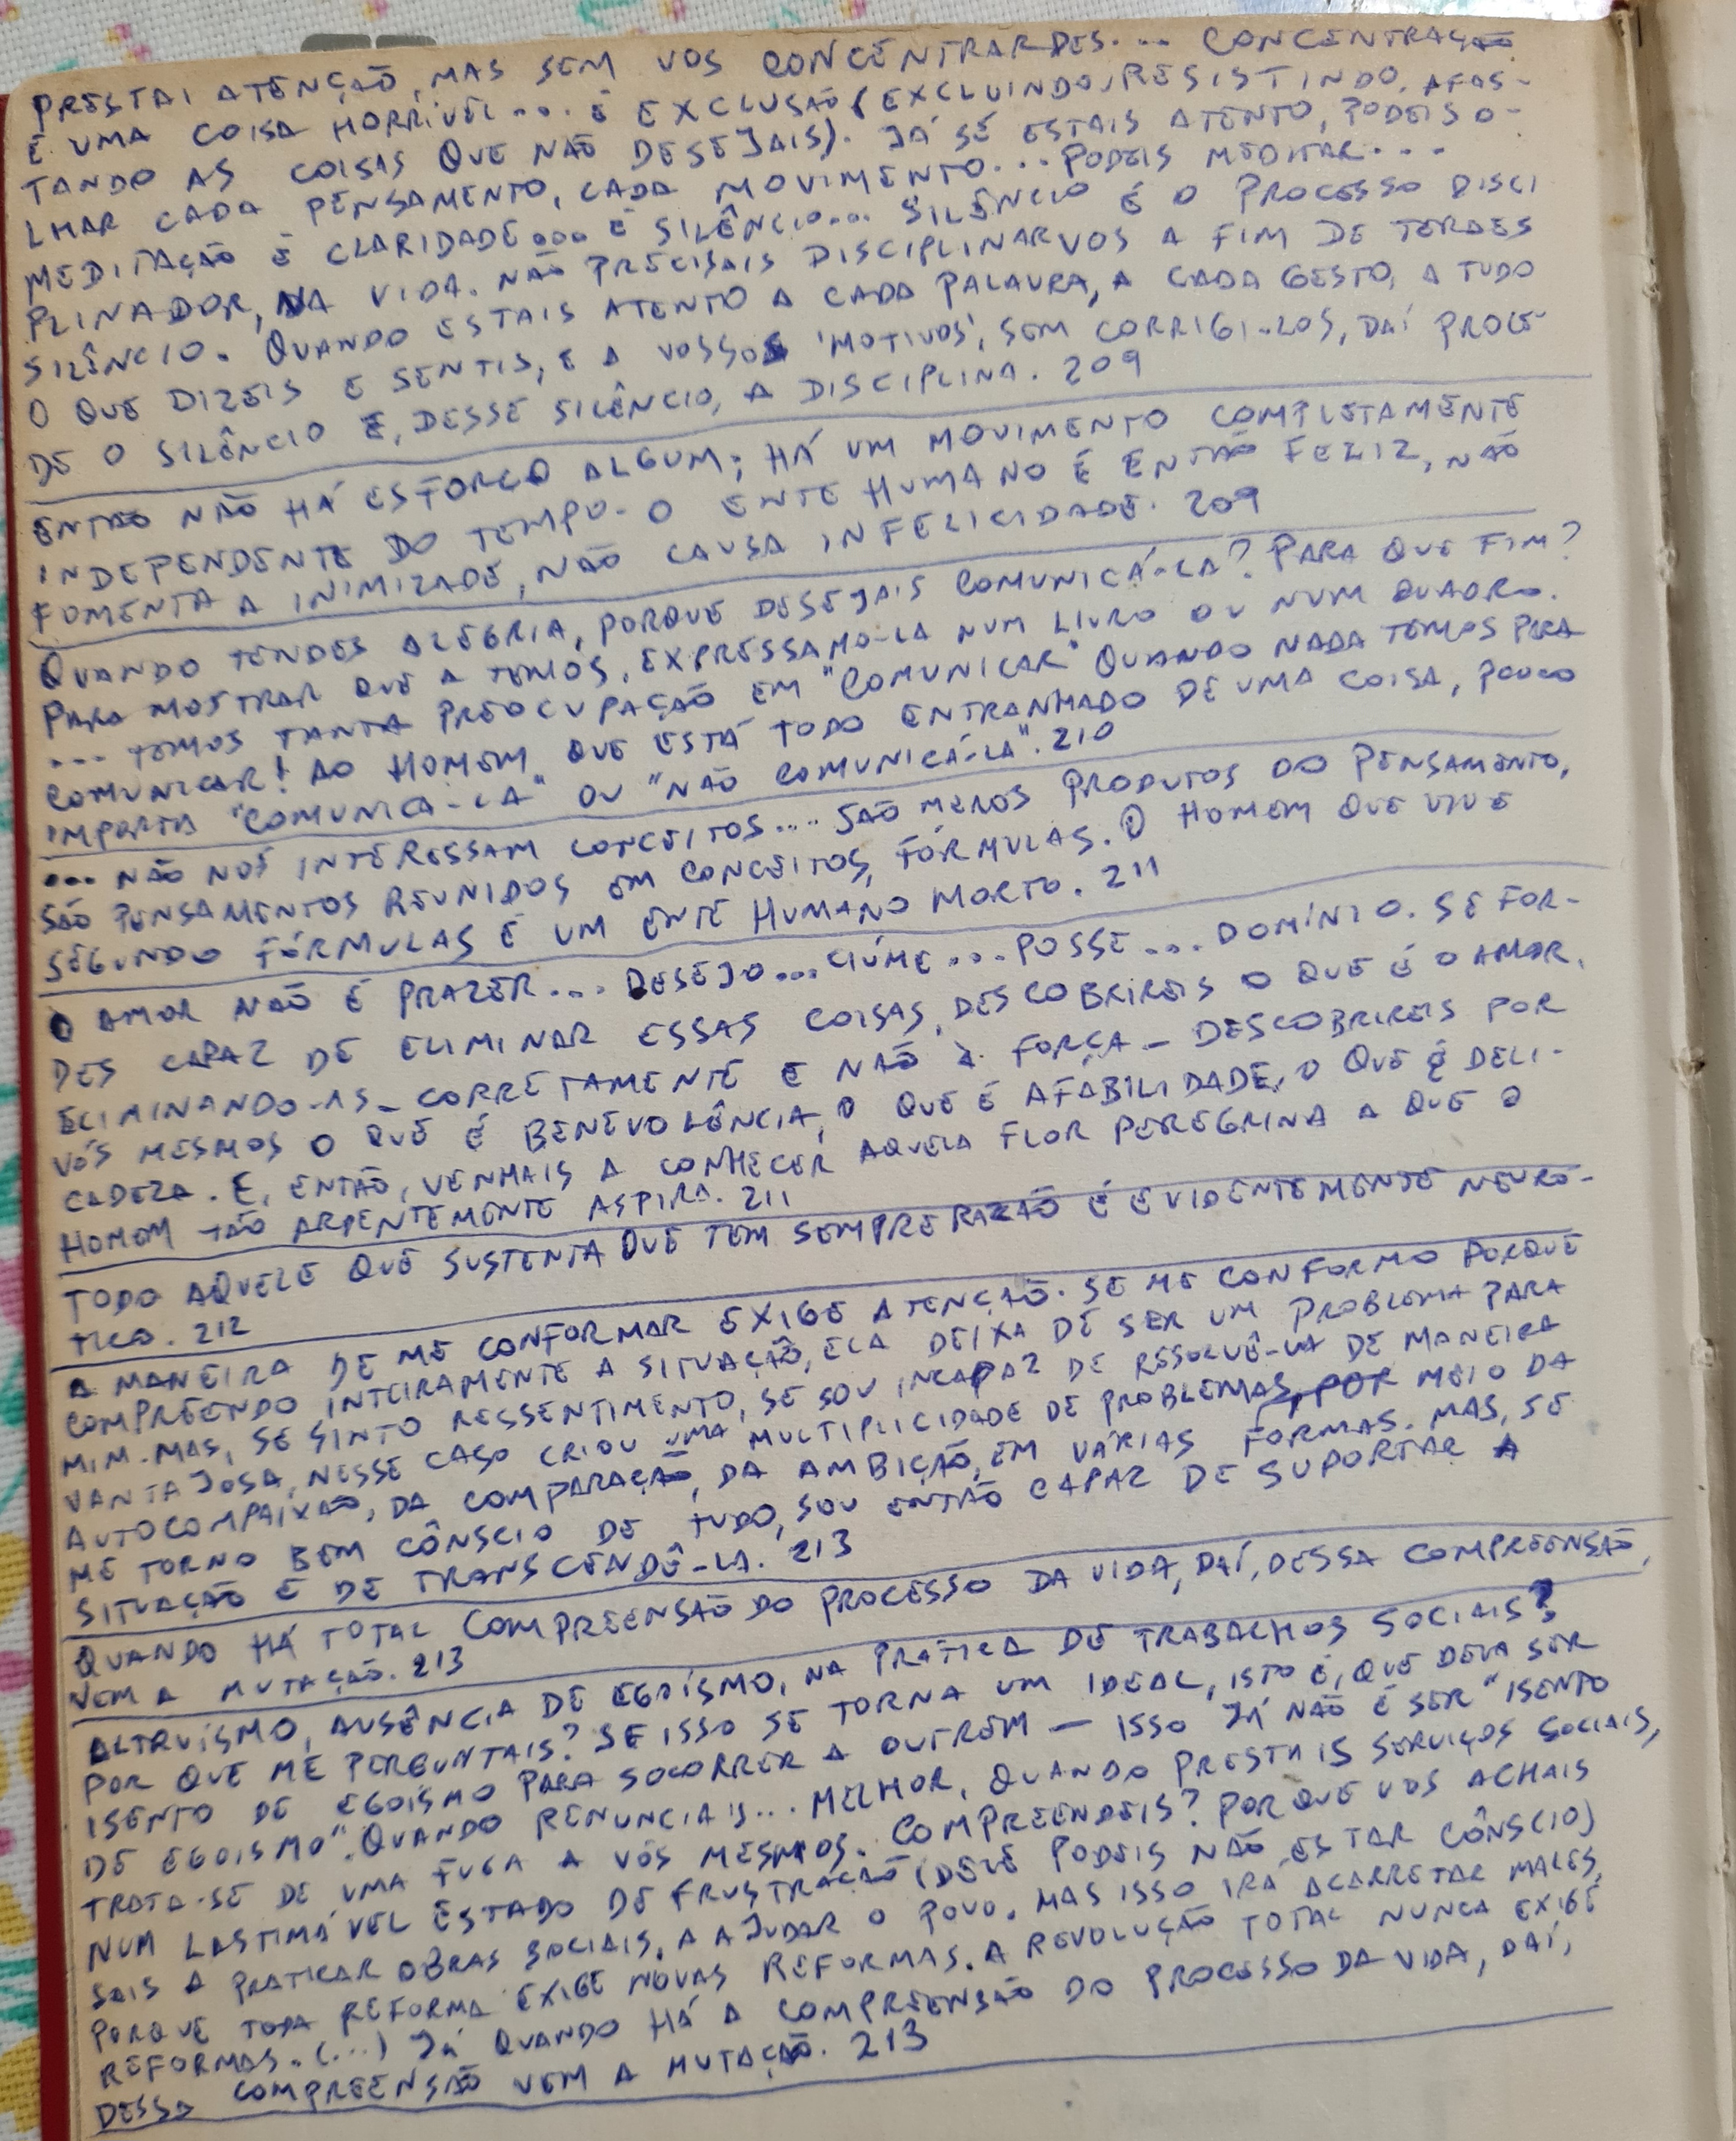 PRESTAI ATENÇÃO, MAS SEM VOS CONCENTRARDES... CONCENTRAÇÃO
É UMA COISA HORRÍVEL... É EXCLUSÃO (EXCLUINDO, RESISTINDO, AFAS-
TANDO AS COISAS QUE NÃO DESEJAIS). JÁ SE ESTAIS ATENTO, PODEIS O-
LHAR CADA PENSAMENTO, CADA MOVIMENTO... PODEIS MEDITAR...
MEDITAÇÃO É CLARIDADE... É SILÊNCIO... SILÊNCIO É O PROCESSO DISCI
PLINADOR, NA VIDA. NÃO PRECISAIS DISCIPLINARVOS A FIM DE TERDES
SILÊNCIO. QUANDO ESTAIS ATENTO A CADA PALAVRA, A CADA GESTO, A TUDO
O QUE DIZEIS E SENTIS, E A VOSSOS 'MOTIVOS', SEM CORRIGI-LOS, DAÍ PROCE-
DE O SILÊNCIO E, DESSE SILÊNCIO, A DISCIPLINA. 209
ENTÃO NÃO HÁ ESFORÇO ALGUM; HÁ UM MOVIMENTO COMPLETAMENTE
INDEPENDENTE DO TEMPO. O ENTE HUMANO É ENTÃO FELIZ, NÃO
FOMENTA A INIMIZADE, NÃO CAUSA INFELICIDADE. 209
QUANDO TENDES ALEGRIA, PORQUE DESEJAIS COMUNICÁ-LA? PARA QUE FIM?
PARA MOSTRAR QUE A TEMOS, EXPRESSAMO-LA NUM LIVRO OU NUM QUADRO.
... TEMOS TANTA PREOCUPAÇÃO EM "COMUNICAR" QUANDO NADA TEMOS PARA
COMUNICAR! AO HOMEM QUE ESTÁ TODO ENTRANHADO DE UMA COISA, POUCO
IMPORTA "COMUNICÁ-LA" OU "NÃO COMUNICÁ-LA". 210
... NÃO NOS INTERESSAM CONCEITOS... SÃO MEROS PRODUTOS DO PENSAMENTO,
SÃO PENSAMENTOS REUNIDOS EM CONCEITOS, FÓRMULAS. O HOMEM QUE VIVE
SEGUNDO FÓRMULAS É UM ENTE HUMANO MORTO. 211
O AMOR NÃO É PRAZER... DESEJO... CIÚME... POSSE... DOMÍNIO. SE FOR-
DES CAPAZ DE ELIMINAR ESSAS COISAS, DESCOBRIREIS O QUE É O AMOR.
ELIMINANDO-AS - CORRETAMENTE E NÃO À FORÇA - DESCOBRIREIS POR
VÓS MESMOS O QUE É BENEVOLÊNCIA, O QUE É AFABILIDADE, O QUE É DELI-
CADEZA. E, ENTÃO, VENHAIS A CONHECER AQUELA FLOR PEREGRINA A QUE O
HOMEM TÃO ARDENTEMENTE ASPIRA. 211
TODO AQUELE QUE SUSTENTA QUE TEM SEMPRE RAZÃO É EVIDENTEMENTE NEURÓ-
TICO. 212
A MANEIRA DE ME CONFORMAR EXIGE ATENÇÃO. SE ME CONFORMO PORQUE
COMPREENDO INTEIRAMENTE A SITUAÇÃO, ELA DEIXA DE SER UM PROBLEMA PARA
MIM. MAS, SE SINTO RESSENTIMENTO, SE SOU INCAPAZ DE RESOLVÊ-LA DE MANEIRA
VANTAJOSA, NESSE CASO CRIOU UMA MULTIPLICIDADE DE PROBLEMAS, POR MEIO DA
AUTOCOMPAIXÃO, DA COMPARAÇÃO, DA AMBIÇÃO, EM VÁRIAS FORMAS. MAS, SE
ME TORNO BEM CÔNSCIO DE TUDO, SOU ENTÃO CAPAZ DE SUPORTAR A
SITUAÇÃO E DE TRANSCENDÊ-LA. 213
QUANDO HÁ TOTAL COMPREENSÃO DO PROCESSO DA VIDA, DAÍ, DESSA COMPREENSÃO,
VEM A MUTAÇÃO. 213
ALTRUÍSMO, AUSÊNCIA DE EGOÍSMO, NA PRÁTICA DE TRABALHOS SOCIAIS?
POR QUE ME PERGUNTAIS? SE ISSO SE TORNA UM IDEAL, ISTO É, QUE DEVA SER
ISENTO DE EGOISMO PARA SOCORRER A OUTREM - ISSO JÁ NÃO É SER "ISENTO
DE EGOISMO". QUANDO RENUNCIAIS... MELHOR, QUANDO PRESTAIS SERVIÇOS SOCIAIS,
TRATA-SE DE UMA FUGA A VÓS MESMOS. COMPREENDEIS? PORQUE VOS ACHAIS
NUM LASTIMÁVEL ESTADO DE FRUSTRAÇÃO (DELE PODEIS NÃO ESTAR CÔNSCIO)
SAIS A PRATICAR OBRAS SOCIAIS, A AJUDAR O POVO. MAS ISSO IRÁ ACARRETAR MALES,
PORQUE TODA REFORMA EXIGE NOVAS REFORMAS. A REVOLUÇÃO TOTAL NUNCA EXIGE
REFORMAS. (...) JÁ QUANDO HÁ A COMPREENSÃO DO PROCESSO DA VIDA, DAÍ,
DESSA COMPREENSÃO VEM A MUTAÇÃO. 213